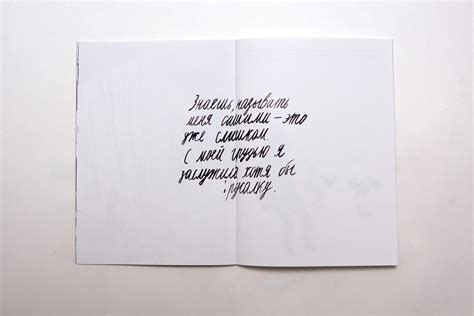 Знаешь, называть
меня сашими – это
уже слишком.
С моей грудью я
заслужил хотя бы
русалку.